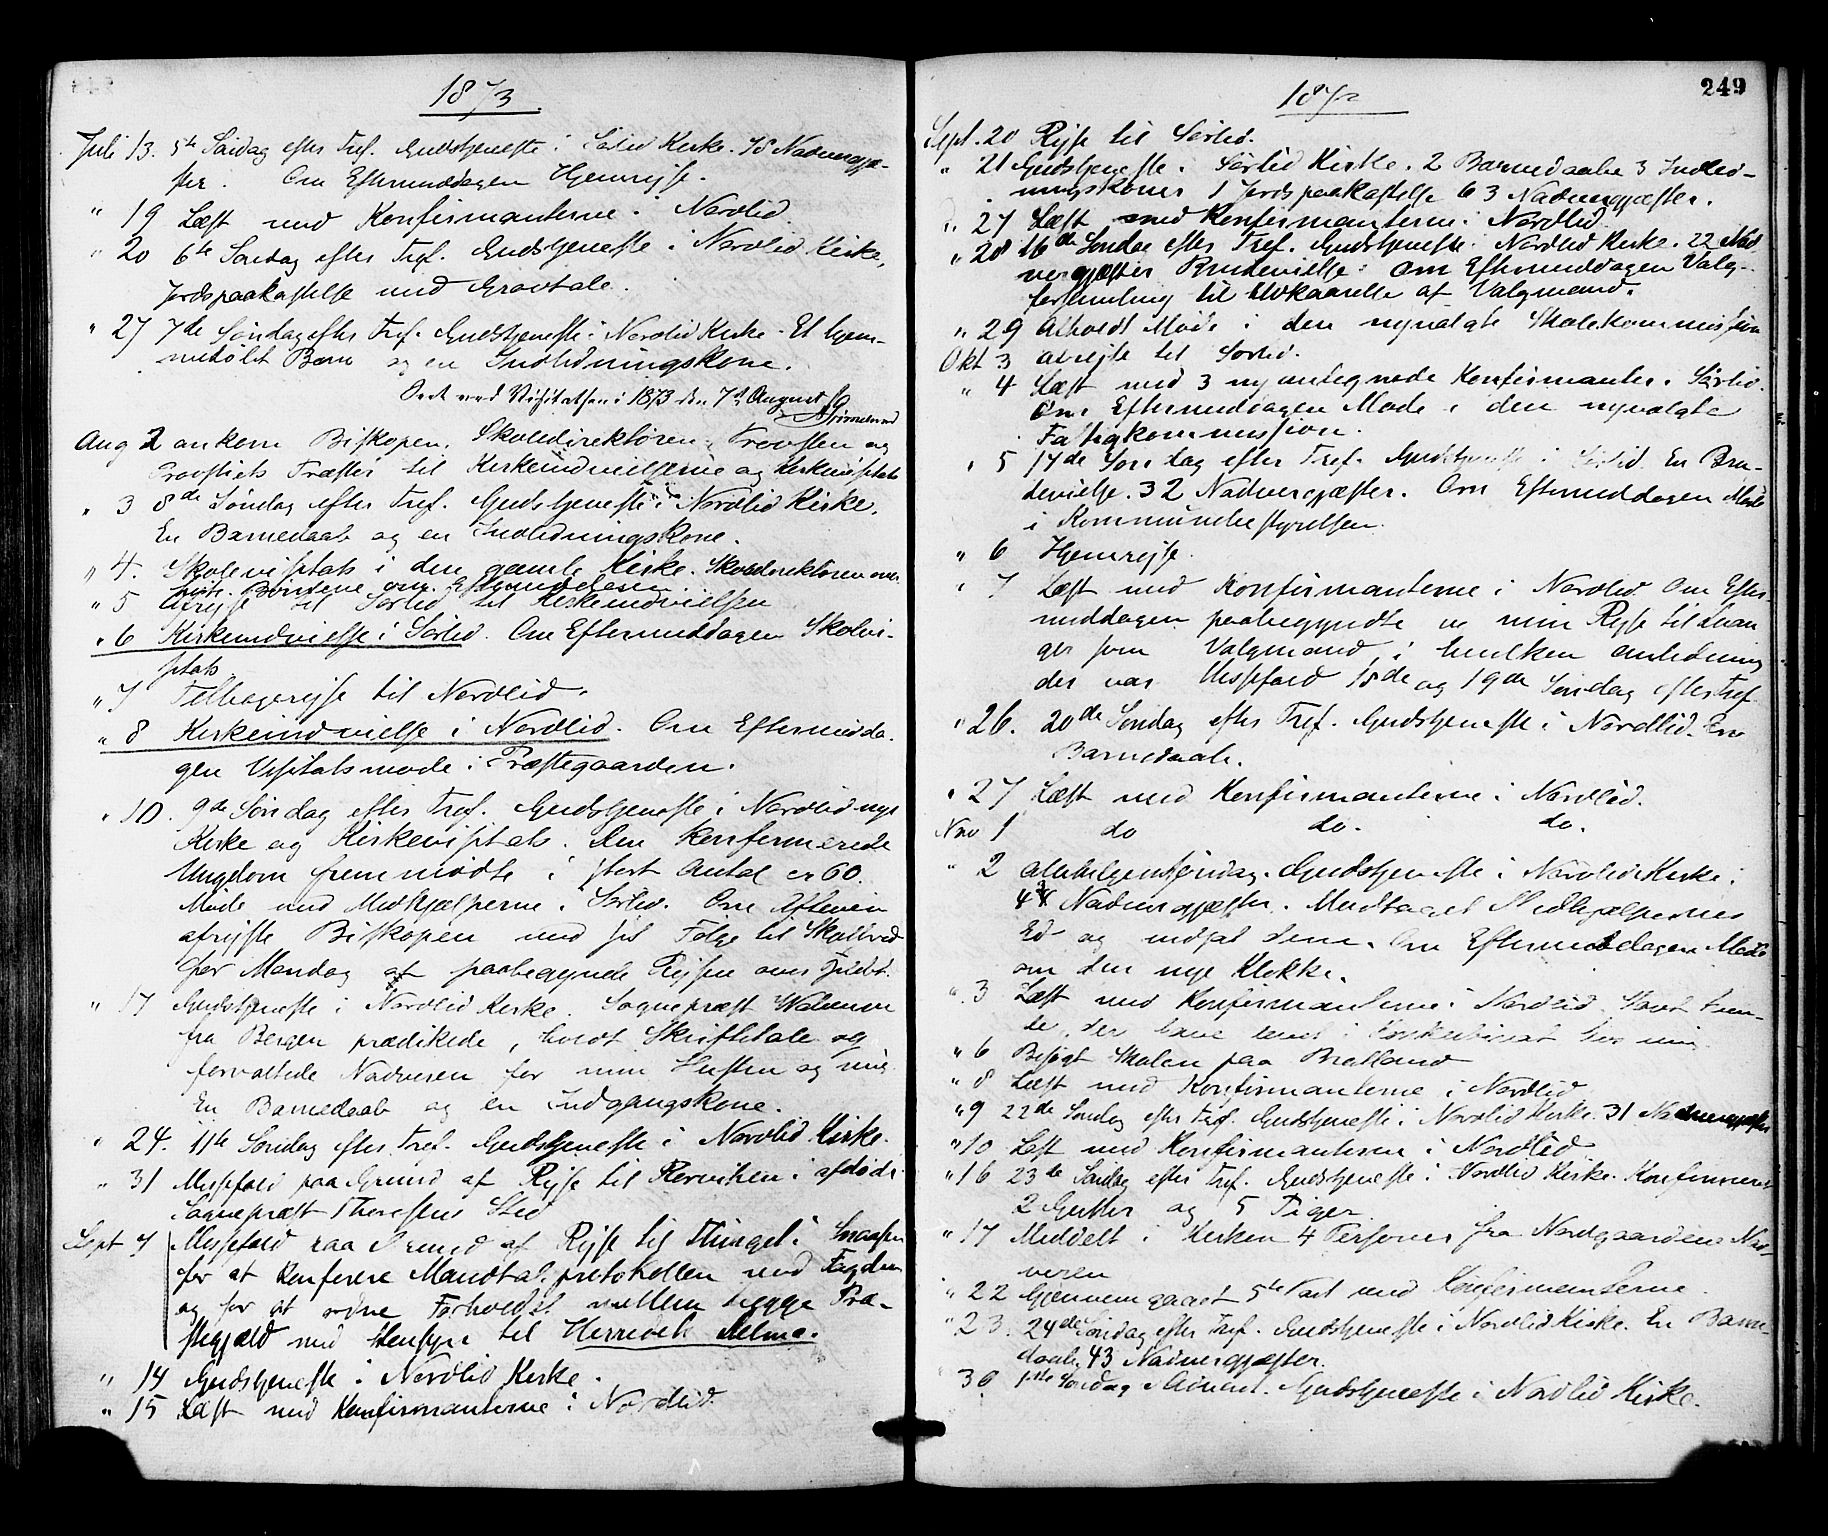 1873
Juli 13. 5te Søndag efter Tref. Gudstjeneste i Sørlid Kirke. 18 Nadvergjæ-
ster. Om Eftermiddagen Hjemrejse.
" 19 Læst med Konfirmanterne i Nordlid.
" 20 6te Søndag efter Tref. Gudstjeneste i Nordlid Kirke,
Jordspaakastelse med Gravtale.
" 27 7de Søndag efter Tref. Gudstjeneste i Nordlid Kirke. Et hjem-
medøbt Barn og en Indledningskone.
Seet ved Visitatsen i 1873 den 7de August
Aug 2 ankom Biskopen, Skoledirektøren, Provsten og
Provstiets Præster til Kirkeindvielserne og Kirkevisitats
" 3 8de Søndag efter Tref. Gudstjeneste i Nordlid Kirke.
En Barnedaab og en Indledningskone.
" 4. Skolevisitats i den gamle Kirke. Skoledirektøren over
hørte Børnene om Eftermiddagen
" 5 Afrejse til Sørlid til Kirkeindvielsen
" 6 Kirkeindvielse i Sørlid. Om Eftermiddagen Skolevi-
sitats
" 7 Tilbagerejse til Nordlid.
" 8 Kirkeindvielse i Nordlid. Om Eftermidda-
gen Visitatsmøde i Præstegaarden.
" 10. 9de Søndag efter Tref. Gudstjeneste i Nordlid nye
Kirke og Kirkevisitats. Den konfirmerede
Ungdom fremmødte i stort Antal ca 60.
Møde med Medhjælperne i Sørlid. Om Aftenen
afrejste Biskopen med sit Følge til
for Mandag at paabegynde Rejsen over Fjeldet.
" 17 Gudstjeneste i Nordlid Kirke. Sognepræst
fra Bergen prædikede, holdt Skriftetale og
forvaltede Nadveren for min Hustru og mig.
En Barnedaab og en Indgangskone.
" 24. 11te Søndag efter Tref. Gudstjeneste i Nordlid Kirke.
" 31 Messefald paa Grund af Rejse til Rørviken i afdøde
Sognepræst Sted
Sept 7 Messefald paa Grund af Rejse til Thinget i Snaasen
for at konferere Mandtalsprotokollen med Fogden
og for at ordne Forholdet mellem begge Præ-
stegjæld med Hensyn til
" 14 Gudstjeneste i Nordlid Kirke.
" 15 Læst med Konfirmanterne i Nordlid.
249
187
Sept. 20 Rejse til Sørlid.
" 21 Gudstjeneste i Sørlid Kirke. 2 Barnedaabe 3 Indled-
ningskoner 1 Jordspaakastelse 63 Nadvergjæster.
" 27 Læst med Konfirmanterne i Nordlid.
" 28 16de Søndag efter Tref. Gudstjeneste i Nordlid Kirke. 22 Nad-
vergjæster Brudevielse. Om Eftermiddagen Valg-
forsamling til Udkaarelse af Valgmænd.
" 29 Afholdt Møde i den nyvalgte Skolekommission
Okt 3 afrejste til Sørlid.
" 4 Læst med 3 nyantegnede Konfirmanter i Sørlid.
Om Eftermiddagen Møde i den nyvalgte
Fattigkommission.
" 5 17de Søndag efter Tref. Gudstjeneste i Sørlid. En Bru-
devielse. 32 Nadvergjæster. Om Eftermiddagen Møde
i Kommunebestyrelsen.
" 6 Hjemrejse.
" 7 Læst med Konfirmanterne i Nordlid. Om Efter-
middagen paabegyndte min Rejse til Levan
ger som Valgmand, i hvilken Anledning
der var Messefald 18de og 19de Søndag efter Tref.
" 26. 20de Søndag efter Tref. Gudstjeneste i Nordlid. En
Barnedaab.
" 27 Læst med Konfirmanterne i Nordlid.
Nov 1 do do. do.
" 2 Allehelgensøndag. Gudstjeneste i Nordlid Kirke.
Nadvergjæster. Modtaget Medhjælpernes
Ed og indsat dem. Om Eftermiddagen Møde
om den nye Klokke.
" 3 Læst med Konfirmanterne i Nordlid.
" 6 Besøgt Skolen paa Bratland
" 8 Læst med Konfirmanterne i Nordlid.
" 9 22de Søndag efter Tref. Gudstjeneste i Nordlid Kirke. 31 Nadvergjæster
" 10 Læst med Konfirmanterne i Nordlid
" 16 23de Søndag efter Tref. Gudstjeneste i Nordlid Kirke. Konfirmeret
2 Gutter og 5 Piger.
" 17 Meddelt i Kirken 4 Personer fra Nordgaardene Nad-
veren
" 22 Gjennemgaaet 5te Part med Konfirmanterne.
" 23. 24de Søndag efter Tref. Gudstjeneste i Nordlid Kirke. En Barne-
daab, 43 Nadvergjæster.
" 30 1ste Søndag i Advent. Gudstjeneste i Nordlid Kirke.